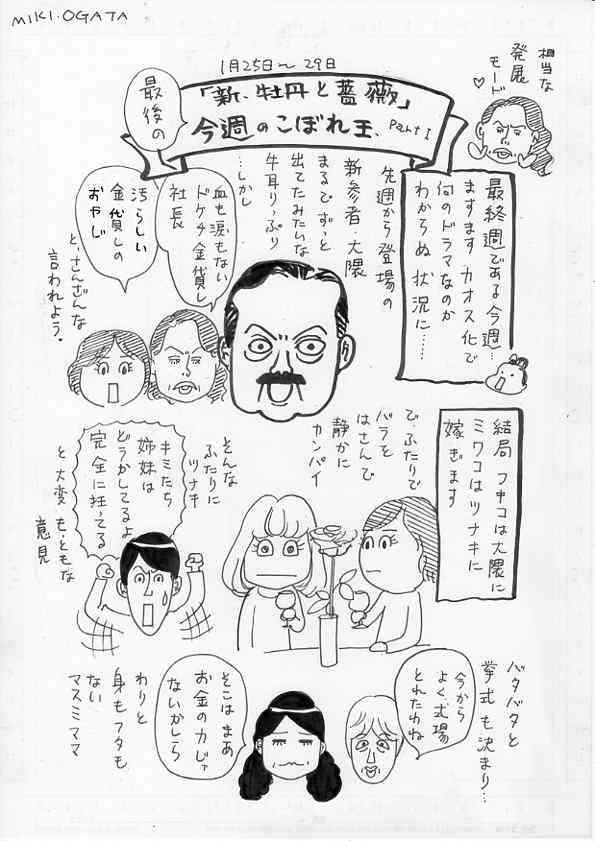 MIKI.OGATA
1月25日〜29日
最後の
「新・牡丹と薔薇」
今週のこぼれ王、Part I
相当な
発展
モード♡
最終週である今週…
ますますカオス化で
何のドラマなのか
わからぬ状況に……
先週から登場の
新参者・大隈
まるでずっと
出てたみたいな
牛耳りっぷり
…しかし
血も涙もない
ドケチ金貸し
社長
汚らしい
金貸しの
おやじ
と、さんざんな
言われよう。
結局フキコは大隈に
ミワコはツナキに
嫁ぎます
で、ふたりで
バラを
はさんで
静かに
カンパイ
そんな
ふたりに
ツナキ
キミたち
姉妹は
どうかしてるよ
完全に狂ってる
と大変も・ともな
意見
バタバタと
挙式も決まり…
今から
よく式場
とれたわね
そこはまあ
お金の力じゃ
ないかしら
わりと
身もフタも
ない
マスミママ